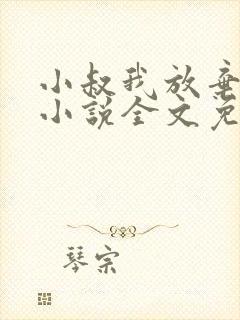 小叔我放弃
小说全文免
琴宗